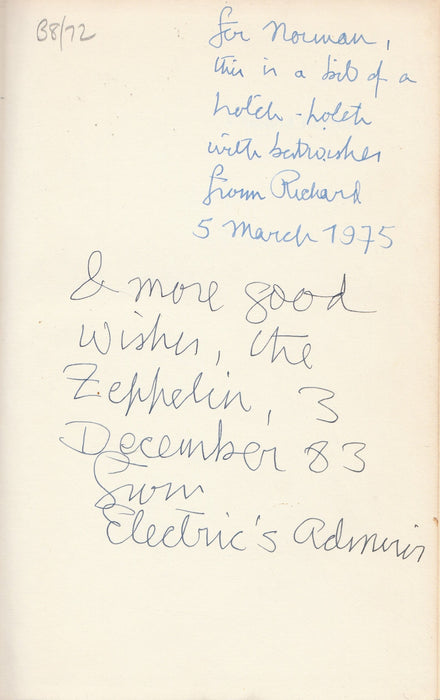 B8/72
for Norman,
this is a bit of a
hotch-potch
with best wishes
from Richard
5 March 1975
& more good
wishes, the
Zeppelin, 3
December 83
from
Electric's Admirer